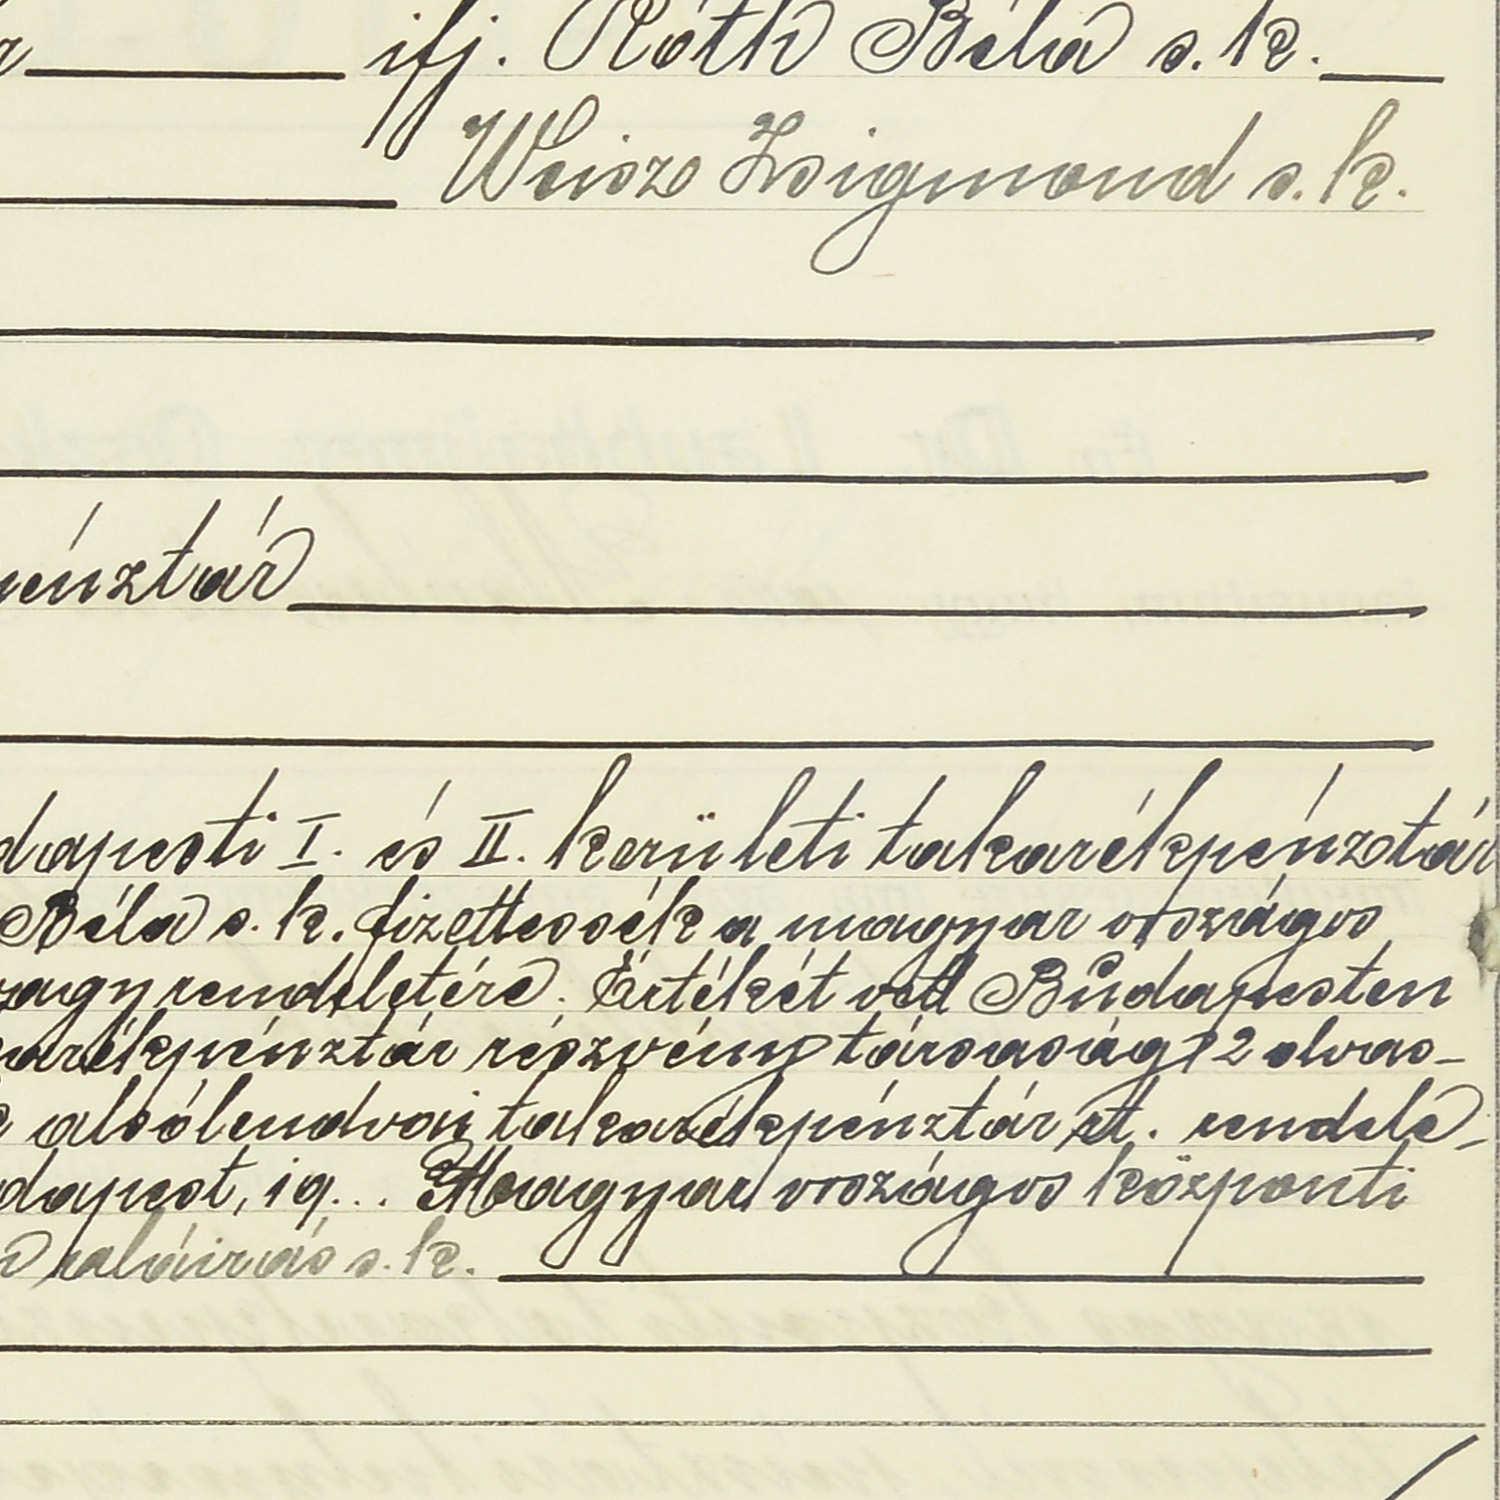 ifj. Róth Béla s. k.
Weisz Zsigmond s. k.
pénztár
dapesti I. és II. kerületi takarékpénztár
Béla s. k. fizettessék a magyar országos
rendeletére. Értékét vett Budapesten
részvény társaság 2 olvas-
alsólendvai takarékpénztár rt. rendele-
dapest, 19... Magyar országos központi
aláirás s. k.